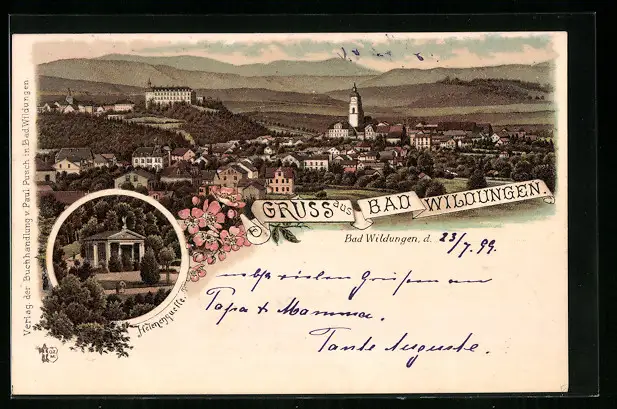 GRUSS aus BAD WILDUNGEN.
Bad Wildungen, d. 23/7. 99.
nebst vielen Grüßen an
Papa & Mamma.
Tante Auguste.
Helenenquelle.
Verlag der Buchhandlung v. Paul Pusch in Bad Wildungen